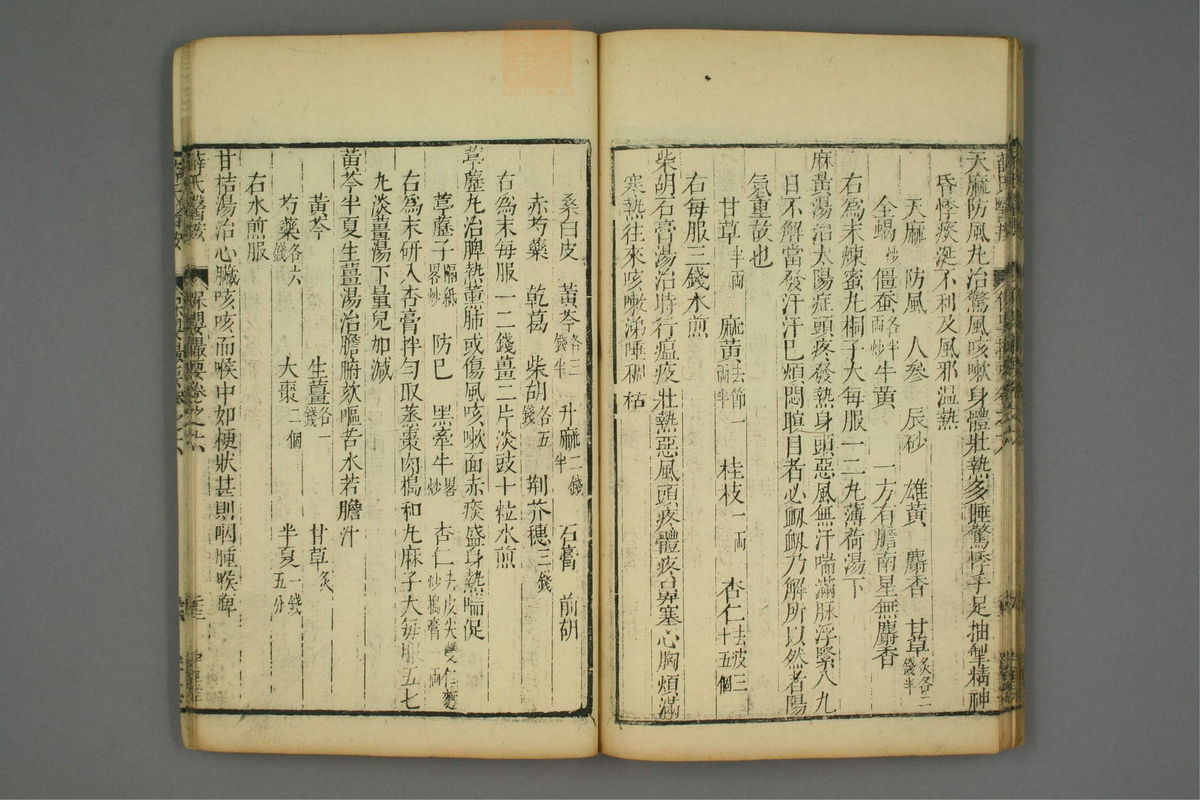 天麻防風丸治驚風咳嗽身體壯熱多睡驚悸手足抽掣精神
昏悸痰涎不利及風邪溫熱
天麻 防風 人參 辰砂 雄黃 麝香 甘草炙各二錢半
全蝎炒 僵蚕各半兩炒 牛黃 一方有膽南星無麝香
右為末煉蜜丸桐子大每服一二丸薄荷湯下
麻黃湯治太陽症頭疼發熱身頭惡風無汗喘滿脉浮緊八九
日不解當發汗汗已煩悶瞑目者必衂衂乃解所以然者陽
氣重故也
甘草半兩 麻黃去節一兩半 桂枝一兩 杏仁去皮三十五個
右每服三錢水煎
柴胡石膏湯治時行瘟疫壯熱惡風頭疼體疼鼻塞心胸煩滿
寒熱往來咳嗽涕唾稠粘
桑白皮 黃芩各三錢半 升麻二錢半 石膏 前胡
赤芍藥 乾葛 柴胡各五錢 荆芥穗三錢
右為末每服一二錢薑二片淡豉十粒水煎
葶藶丸治脾熱薰肺或傷風咳嗽面赤痰盛身熱喘促
葶藶子隔紙畧炒 防已 黑牽牛畧炒 杏仁去皮尖雙仁麩炒搗膏一兩
右為末研入杏膏拌勻取蒸棗肉搗和丸麻子大每服五七
丸淡薑湯下量兒加減
黃芩半夏生薑湯治膽腑欬嘔苦水若膽汁
黃芩 生薑各一錢 甘草炙
芍藥各六錢 大棗二個 半夏一錢五分
右水煎服
甘桔湯治心臟咳咳而喉中如梗狀甚則咽腫喉痺
薛氏醫按 保嬰撮要卷之六